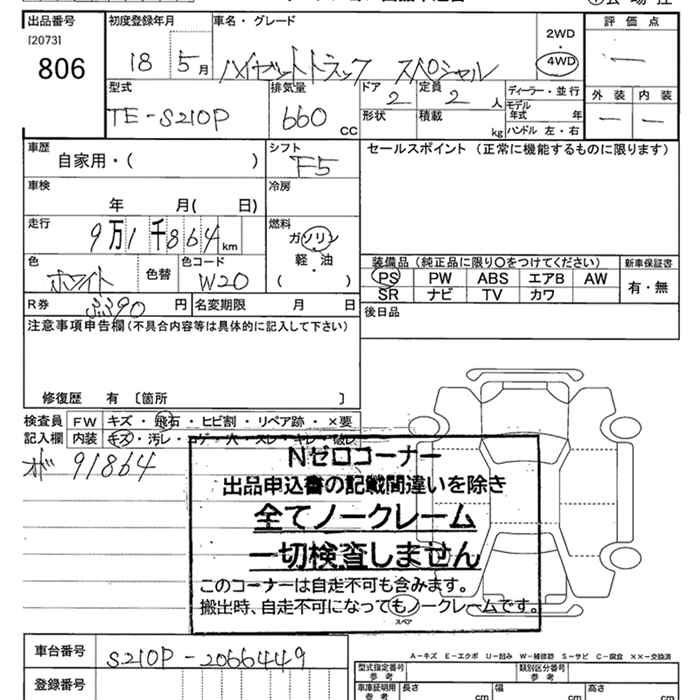 出品番号 初度登録年月 車名・グレード 評価点
[2073]
806 18 5月 ハイゼットトラック スペシャル 2WD・4WD —
型式 排気量 ドア 定員 ディーラー・並行 外装 内装
TE-S210P 660cc 2 2人 モデル年式 年 — —
形状 積載 kg ハンドル 左・右
車歴 シフト セールスポイント(正常に機能するものに限ります)
自家用・( ) F5
車検 冷房
年 月( 日)
走行 燃料
9万1千864km ガソリン
軽・油
( )
色 色替 色コード 装備品(純正品に限り○をつけてください) 新車保証書
ホワイト W20 PS PW ABS エアB AW 有・無
SR ナビ TV カワ
R券 円 名変期限 月 日 後日品
注意事項申告欄(不具合内容等は具体的に記入して下さい)
修復歴 有 〔箇所 〕
検査員 FW キズ・飛石・ヒビ割・リペア跡・×要
記入欄 内装 キズ・汚レ・コゲ・穴・スレ・キレ・破レ
91864
Nゼロコーナー
出品申込書の記載間違いを除き
全てノークレーム
一切検査しません
このコーナーは自走不可も含みます。
搬出時、自走不可になってもノークレームです。
スペア
A-キズ E-エクボ U-凹み W-補修跡 S-サビ C-腐食 ××-交換済
車台番号 S210P-2066449 型式指定番号 参考 類別区分番号 参考
登録番号 車庫証明用 参考 長さ cm 幅 cm 高さ cm